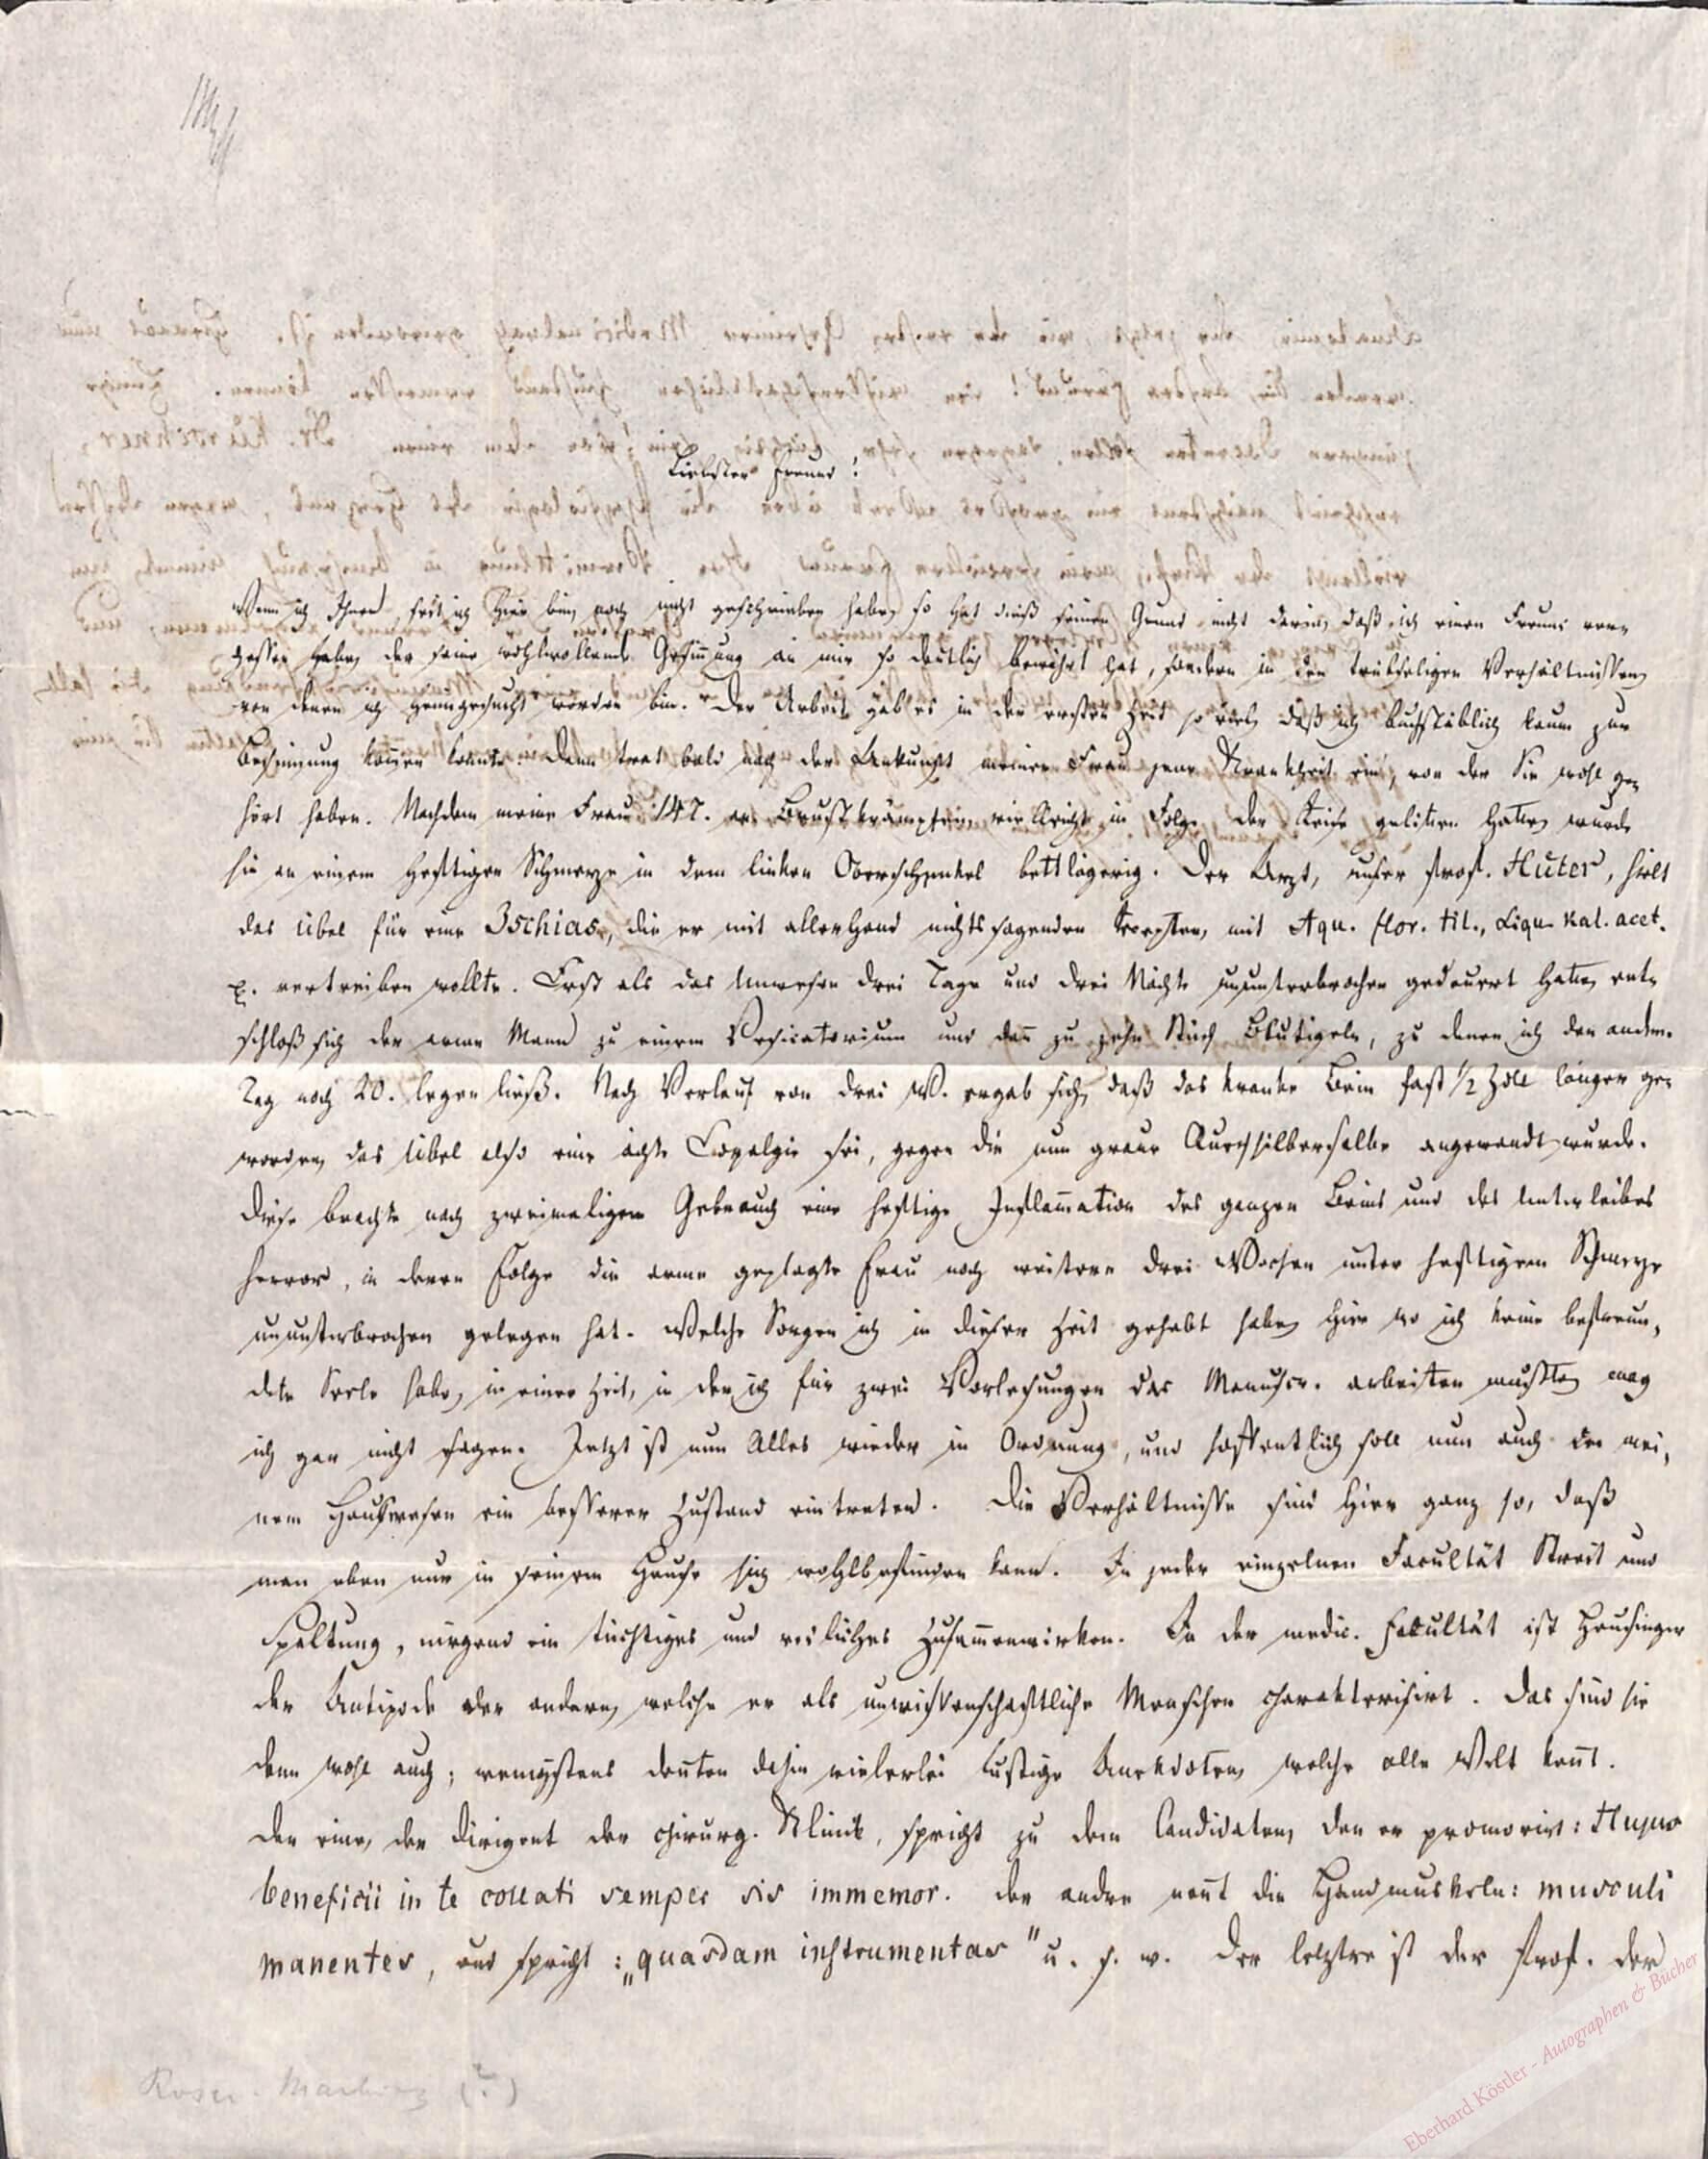 Liebster Freund!
Wenn ich Ihnen, seit ich hier bin, noch nicht geschrieben habe, so hat dieß seinen Grund nicht darin, daß ich einen Freund ver-
gessen habe, der seine wohlwollende Gesinnung an mir so deutlich bewährt hat, sondern in den trübseligen Verhältnissen
von denen ich heimgesucht worden bin. Der Arbeit gab es in der ersten Zeit so viel, daß ich buchstäblich kaum zur
Besinnung kom̄en konnte. Dann trat bald nach der Ankunft meiner Frau jene Krankheit ein, von der Sie wohl ge-
hört haben. Nachdem meine Frau 14 T. an Brustkrämpfen, vielleicht in Folge der Reise gelitten hatte, wurde
sie an einem heftigen Schmerze in dem linken Oberschenkel bettlägerig. Der Arzt, unser Prof. Hüter, hielt
das Übel für eine Ischias, die er mit allerhand nichtssagenden Recepten, mit Aqu. flor. til., Liqu. Kal. acet.
p. vertreiben wollte. Erst als das Unwesen drei Tage und drei Nächte ununterbrochen gedauert hatte, ent-
schloß sich der arme Mann zu einem Vesicatorium und dan̄ zu zehn Stück Blutigeln, zu denen ich den andern
Tag noch 20. legen ließ. Nach Verlauf von drei W. ergab sich, daß das kranke Bein fast 1/2 Zoll länger ge-
worden, das Übel also eine ächte Coxalgie sei, gegen die nun graue Quecksilbersalbe angewandt wurde.
Diese brachte nach zweimaligem Gebrauch eine heftige Inflam̄ation des ganzen Beins und des Unterleibes
hervor, in deren Folge die arme geplagte Frau noch weitere drei Wochen unter heftigem Schmerze
ununterbrochen gelegen hat. Welche Sorgen ich in dieser Zeit gehabt habe, hier wo ich keine befreun-
dete Seele habe, in einer Zeit, in der ich für zwei Vorlesungen das Manuscr. arbeiten mußte, mag
ich gar nicht sagen. Jetzt ist nun Alles wieder in Ordnung, und hoffentlich soll nun auch in mei-
nem Hauswesen ein besserer Zustand eintreten. Die Verhältnisse sind hier ganz so, daß
man eben nur in seinem Hause sich wohlbefinden kann. In jeder einzelnen Facultät Streit und
Spaltung, nirgend ein tüchtiges und redliches Zusam̄enwirken. In der medic. Facultät ist Heusinger
der Antipode der andern, welche er als unwissenschaftliche Menschen charakterisirt. Das sind sie
denn wohl auch; wenigstens deuten dahin vielerlei lustige Anekdoten, welche alle Welt ken̄t.
Der eine, der Dirigent der chirurg. Klinik, spricht zu dem Candidaten, den er promovirt: Hujus
beneficii in te collati semper sis immemor. Der andre nen̄t die Handmuskeln: musculi
manentes, und spricht: „quasdam instrumentas" u. s. w. Der letztre ist der Prof. der
Roser. Marburg (?)
Eberhard Köstler - Autographen & Bücher